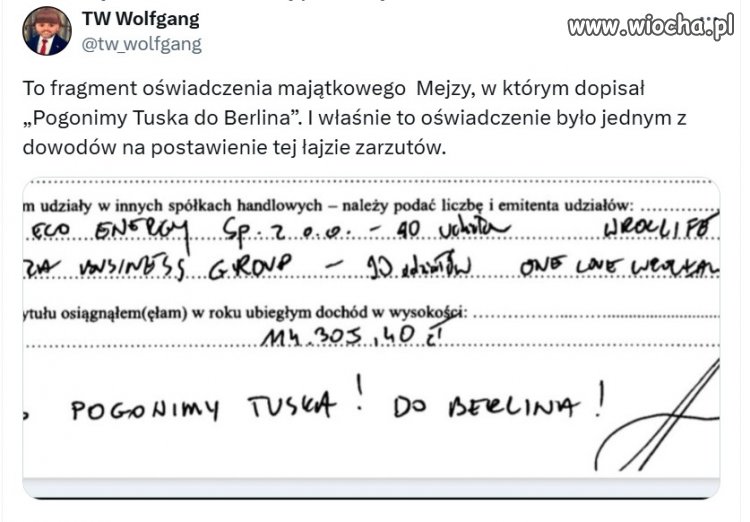 TW Wolfgang
@tw_wolfgang
www.wiocha.pl
To fragment oświadczenia majątkowego Mejzy, w którym dopisał
„Pogonimy Tuska do Berlina”. I właśnie to oświadczenie było jednym z
dowodów na postawienie tej łajzie zarzutów.
m udziały w innych spółkach handlowych – należy podać liczbę i emitenta udziałów:
ECO ENERGY Sp. z o.o. – 40 WROCLIFE
GROUP – 90 udziałów ONE LOVE
ytułu osiągnąłem(ęłam) w roku ubiegłym dochód w wysokości:
114.305,40 zł
POGONIMY TUSKA! DO BERLINA!